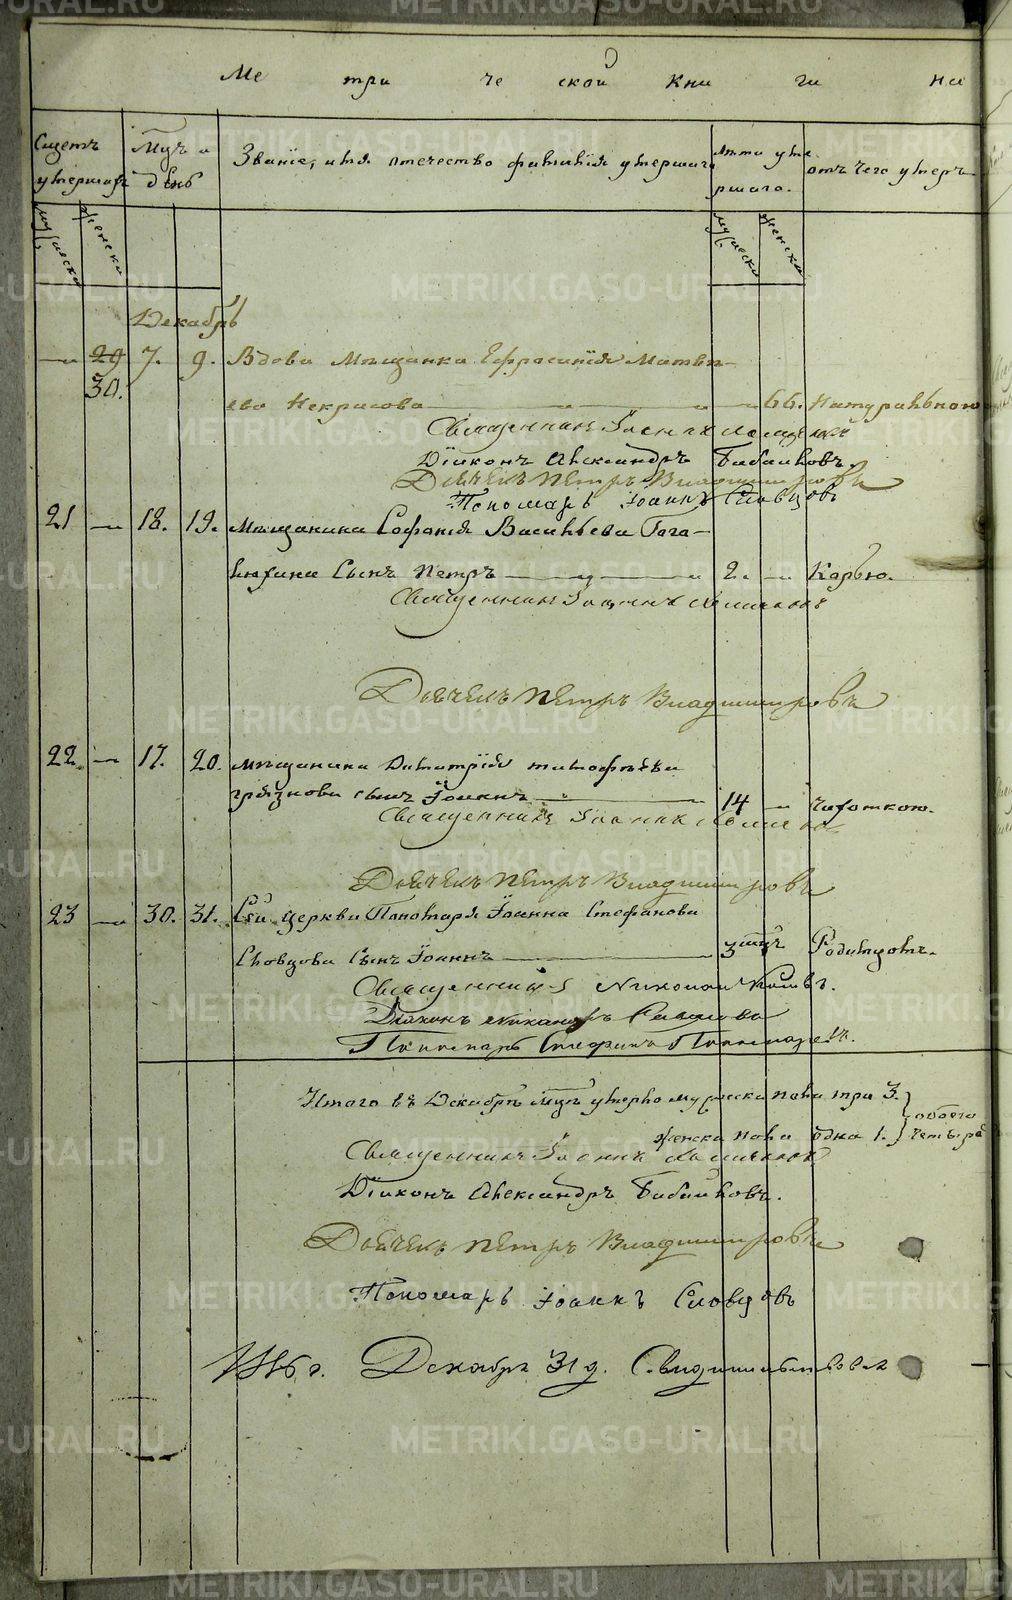 Ме три че ской Кни ги на
Счетъ умершихъ
Мцъ и день
Званіе, имя отечество фамилія умершаго
лѣта умершаго.
отъ чего умеръ
мужеска
женска
мужеска
женска
Декабрь
— 29 7. 9. Вдова Мѣщанка Ефросинія Матвѣ-
30.
ева Некрасова — 66. Натуральною
Священникъ Іоаннъ
Діаконъ Александръ Бибиковъ.
Дьячекъ Петръ Владимировъ
Пономарь Іоаннъ Словцовъ
21 — 18. 19. Мѣщанина Софонія Васильева Гага-
люхина Сынъ Петръ — 2. — Карью.
Священникъ Іоаннъ
Дьячекъ Петръ Владимировъ
22 — 17. 20. Мѣщанина Димитрія Тимофѣева
Грязнова сынъ Іоаннъ — 14 — Чахоткою.
Священникъ Іоаннъ
Дьячекъ Петръ Владимировъ
23 — 30. 31. Сей церкви Пономаря Іоанна Стефанова
Словцова Сынъ Іоаннъ — 3 мцъ Родимцомъ.
Священникъ Николай
Діаконъ Никаноръ
Пономарь Стефанъ Пономаревъ.
Итого въ Декабрѣ мцѣ умерло мужеска пола три 3.
обоего
женска пола одна 1. четыре
Священникъ Іоаннъ
Діаконъ Александръ Бибиковъ.
Дьячекъ Петръ Владимировъ
Пономарь Іоаннъ Словцовъ
Декабря 31 д. Свидѣтельствовал
METRIKI.GASO-URAL.RU